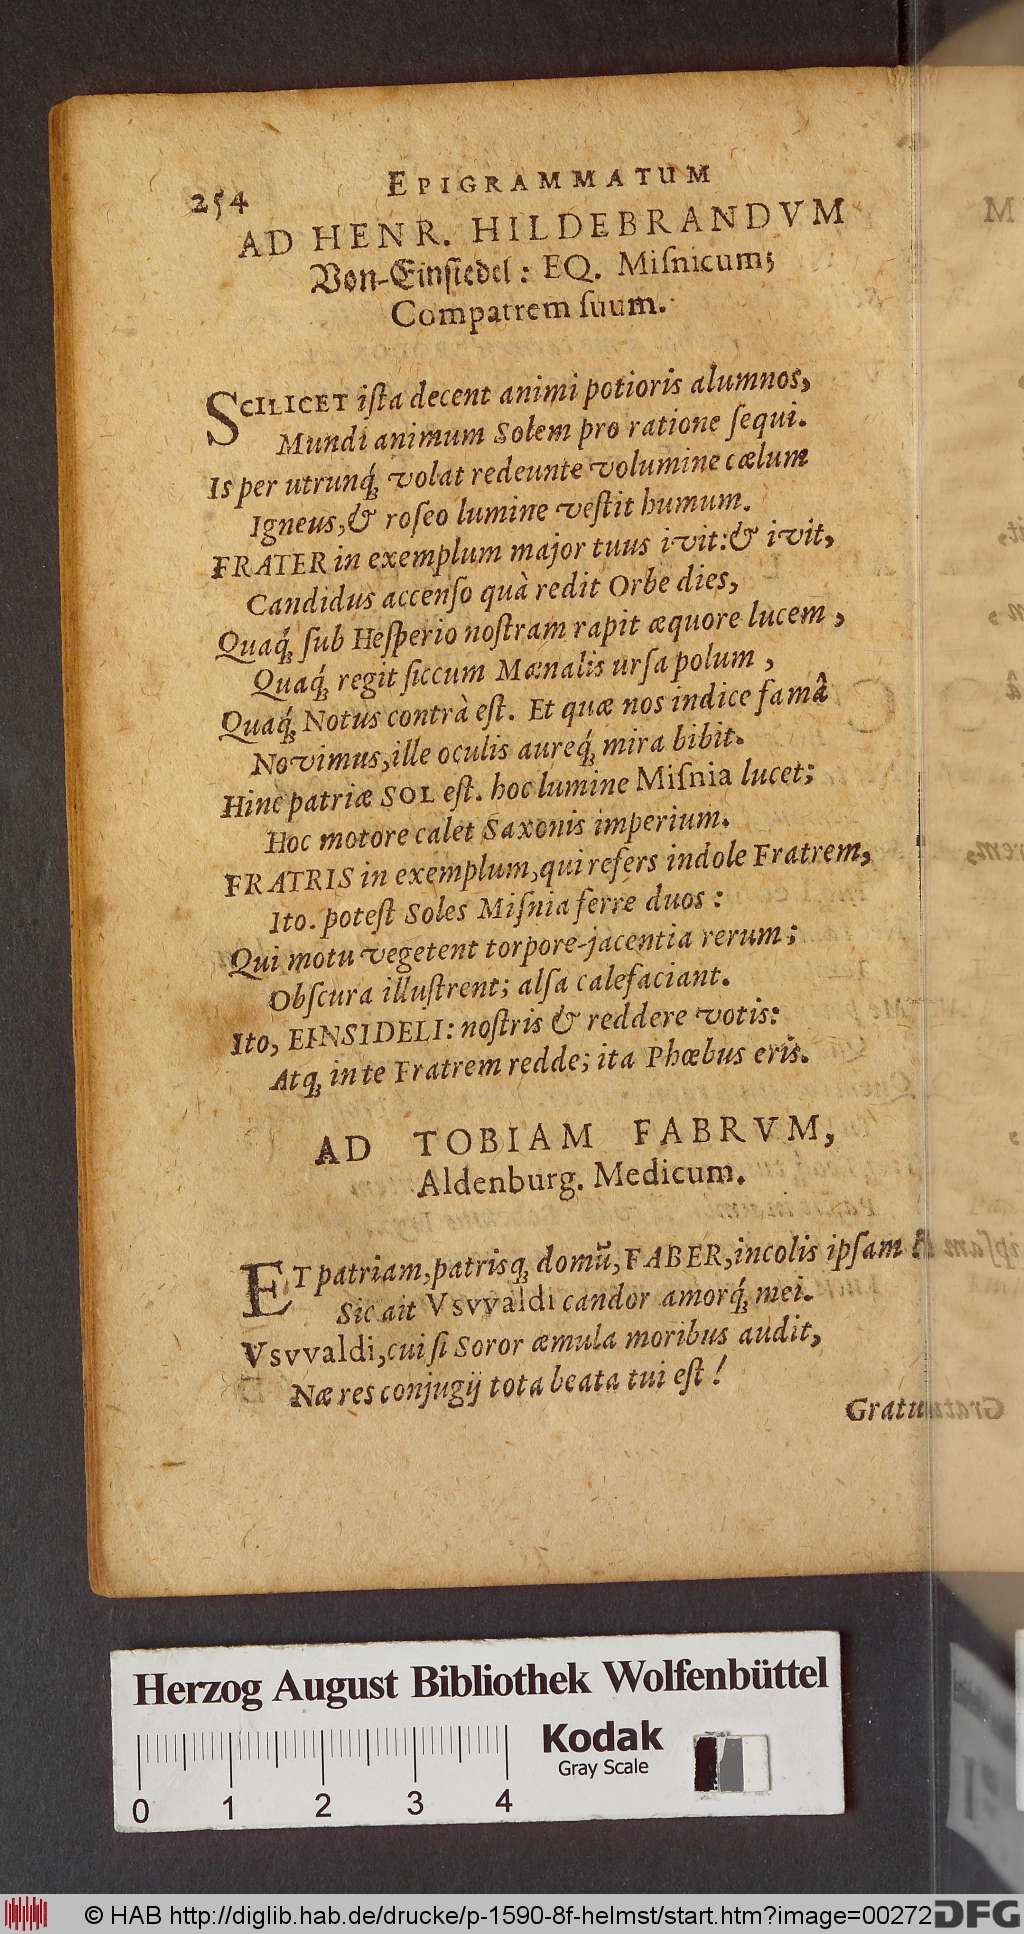 254 EPIGRAMMATUM
AD HENR. HILDEBRANDVM
Von-Einsiedel: EQ. Miſnicum;
Compatrem ſuum.
SCILICET iſta decent animi potioris alumnos,
Mundi animum Solem pro ratione ſequi.
Is per utrunq́ꝫ volat redeunte volumine cælum
Igneus, & roſeo lumine veſtit humum.
FRATER in exemplum major tuus ivit: & ivit,
Candidus accenſo quà redit Orbe dies,
Quaq́ꝫ ſub Heſperio noſtram rapit æquore lucem,
Quaq́ꝫ regit ſiccum Mænalis urſa polum,
Quaq́ꝫ Notus contrà eſt. Et quæ nos indice famâ
Novimus, ille oculis aureq́ꝫ mira bibit.
Hinc patriæ SOL eſt. hoc lumine Miſnia lucet;
Hoc motore calet Saxonis imperium.
FRATRIS in exemplum, qui refers indole Fratrem,
Ito. poteſt Soles Miſnia ferre duos:
Qui motu vegetent torpore-jacentia rerum;
Obſcura illuſtrent; alſa calefaciant.
Ito, EINSIDELI: noſtris & reddere votis:
Atqꝫ in te Fratrem redde; ita Phœbus eris.
AD TOBIAM FABRVM,
Aldenburg. Medicum.
ET patriam, patrisqꝫ domũ, FABER, incolis ipſam
Sic ait Vsvvaldi candor amorq́ꝫ mei.
Vsvvaldi, cui ſi Soror æmula moribus audit,
Næ res conjugij tota beata tui eſt!
Gratu
Herzog August Bibliothek Wolfenbüttel
Kodak
Gray Scale
0 1 2 3 4
© HAB http://diglib.hab.de/drucke/p-1590-8f-helmst/start.htm?image=00272
DFG